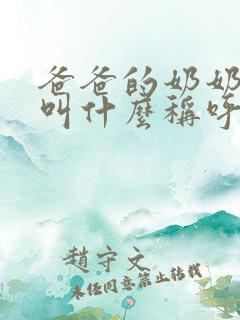 爸爸的奶奶
叫什麼稱呼
趙守文
未任同意禁止转载